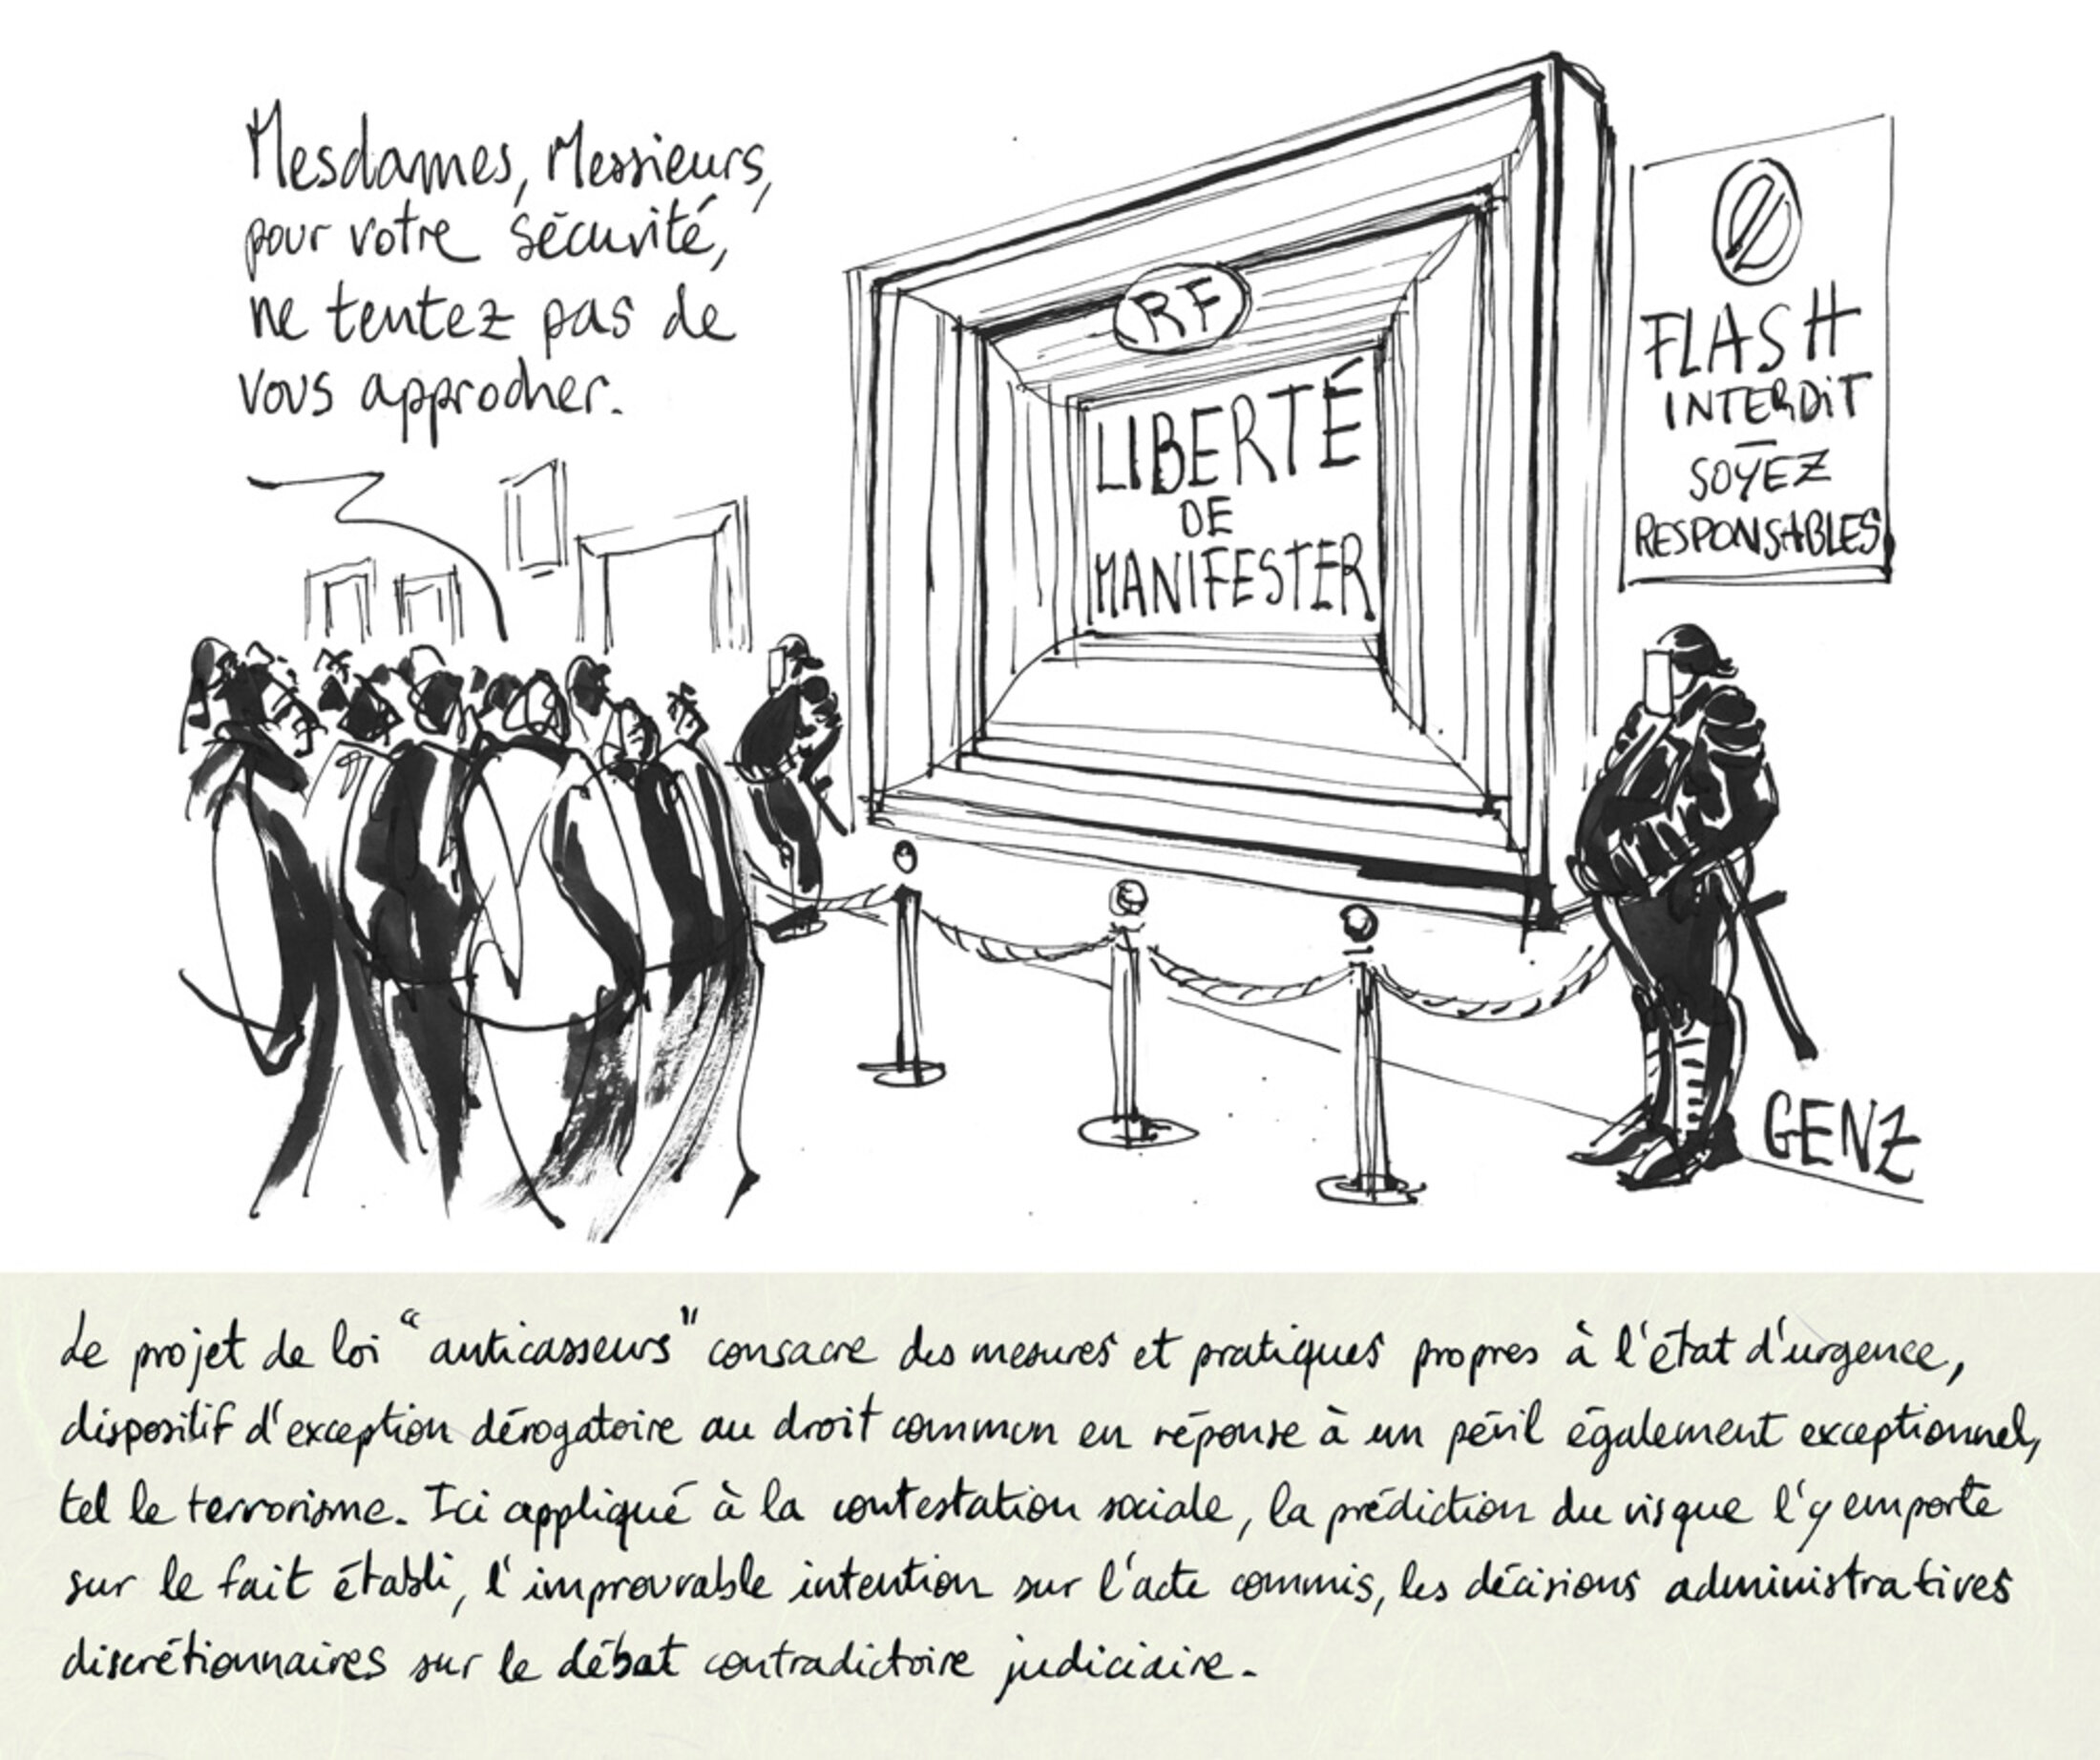 Mesdames, Messieurs,
pour votre sécurité,
ne tentez pas de
vous approcher.
RF
LIBERTÉ
DE
MANIFESTER
FLASH
INTERDIT
-
SOYEZ
RESPONSABLES
GENZ
Le projet de loi “anticasseurs” consacre des mesures et pratiques propres à l'état d'urgence,
dispositif d'exception dérogatoire au droit commun en réponse à un péril également exceptionnel,
tel le terrorisme. Ici appliqué à la contestation sociale, la prédiction du risque l'y emporte
sur le fait établi, l'improuvable intention sur l'acte commis, les décisions administratives
discrétionnaires sur le débat contradictoire judiciaire.